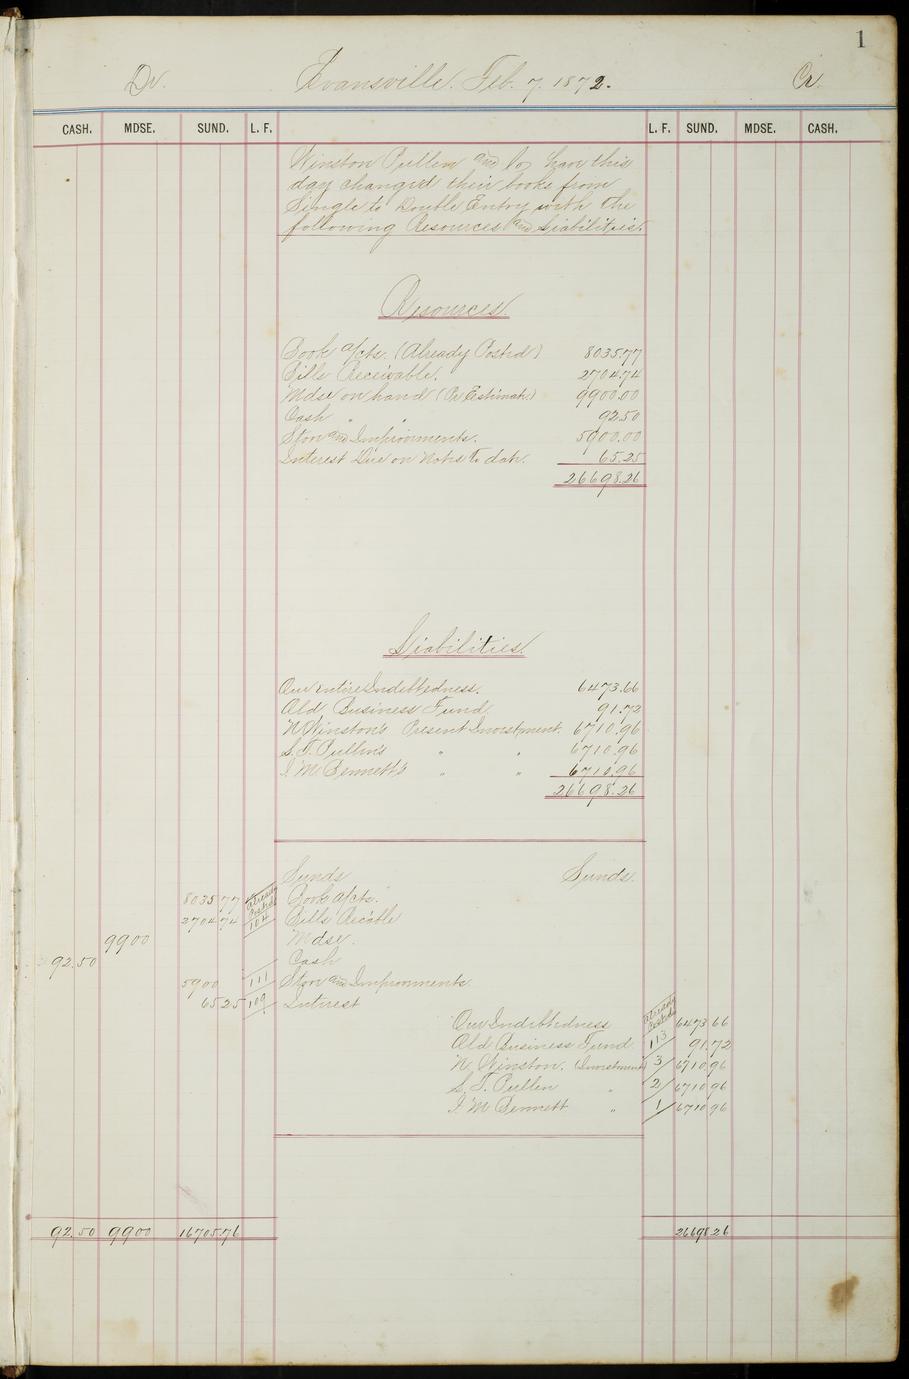 1
Dr. Evansville. Feb. 7. 1872. Cr.
CASH. MDSE. SUND. L. F. L. F. SUND. MDSE. CASH.
Winston Pullen and Co have this
day changed their books from
Single to Double Entry with the
following Resources and Liabilities.
Resources
Book a/cts. (Already Posted) 8035.77
Bills Receivable. 2704.74
Mdse on hand (Pr Estimate) 9900.00
Cash " " 92.50
Store and Improvements. 5900.00
Interest Due on Notes to date. 65.25
26698.26
Liabilities
Our entire Indebtedness. 6473.66
Old Business Fund 91.72
N Winston's Present Investment. 6710.96
S. T. Pullen's " " 6710.96
I M Bennett's " " 6710.96
26698.26
Sunds Sunds.
8035 77 Already Posted Book a/cts.
2704 74 104 Bills Rec'able
9900 Mdse.
92.50 Cash
5900 111 Store and Improvements.
65 25 109 Interest
Our Indebtedness Already Posted 6473 66
Old Business Fund 113 91.72
N. Winston. (Investment) 3 6710 96
S. T. Pullen " 2 6710 96
I M Bennett " 1 6710 96
92.50 9900 16705.76 26698 26